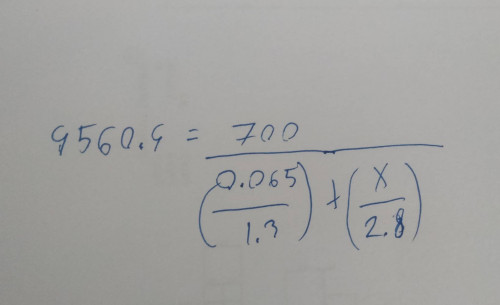 9560.9 = 700
(0.065 / 1.3) + (x / 2.8)